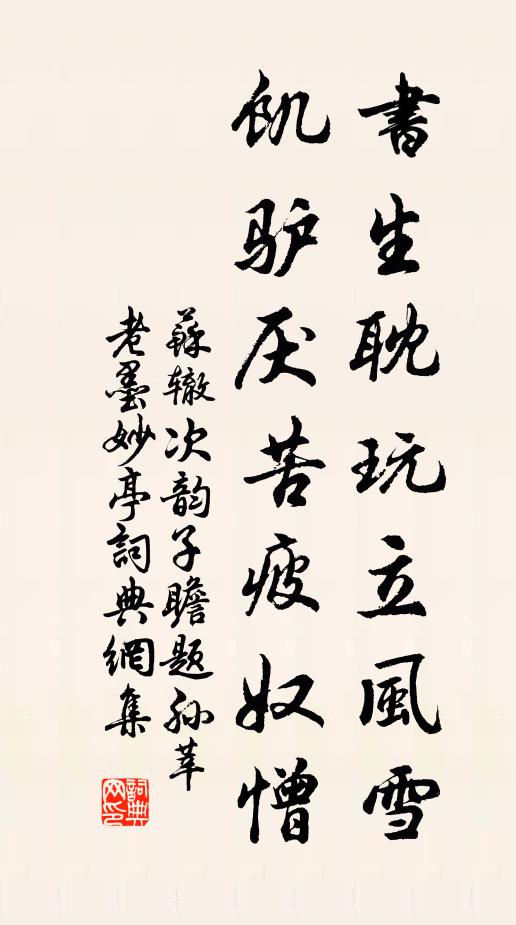 書生耽玩立風雪
飢驴厌苦疲奴憎
蘇辙次韵子瞻题孙莘
老墨妙亭詞典網集
詞典
网印